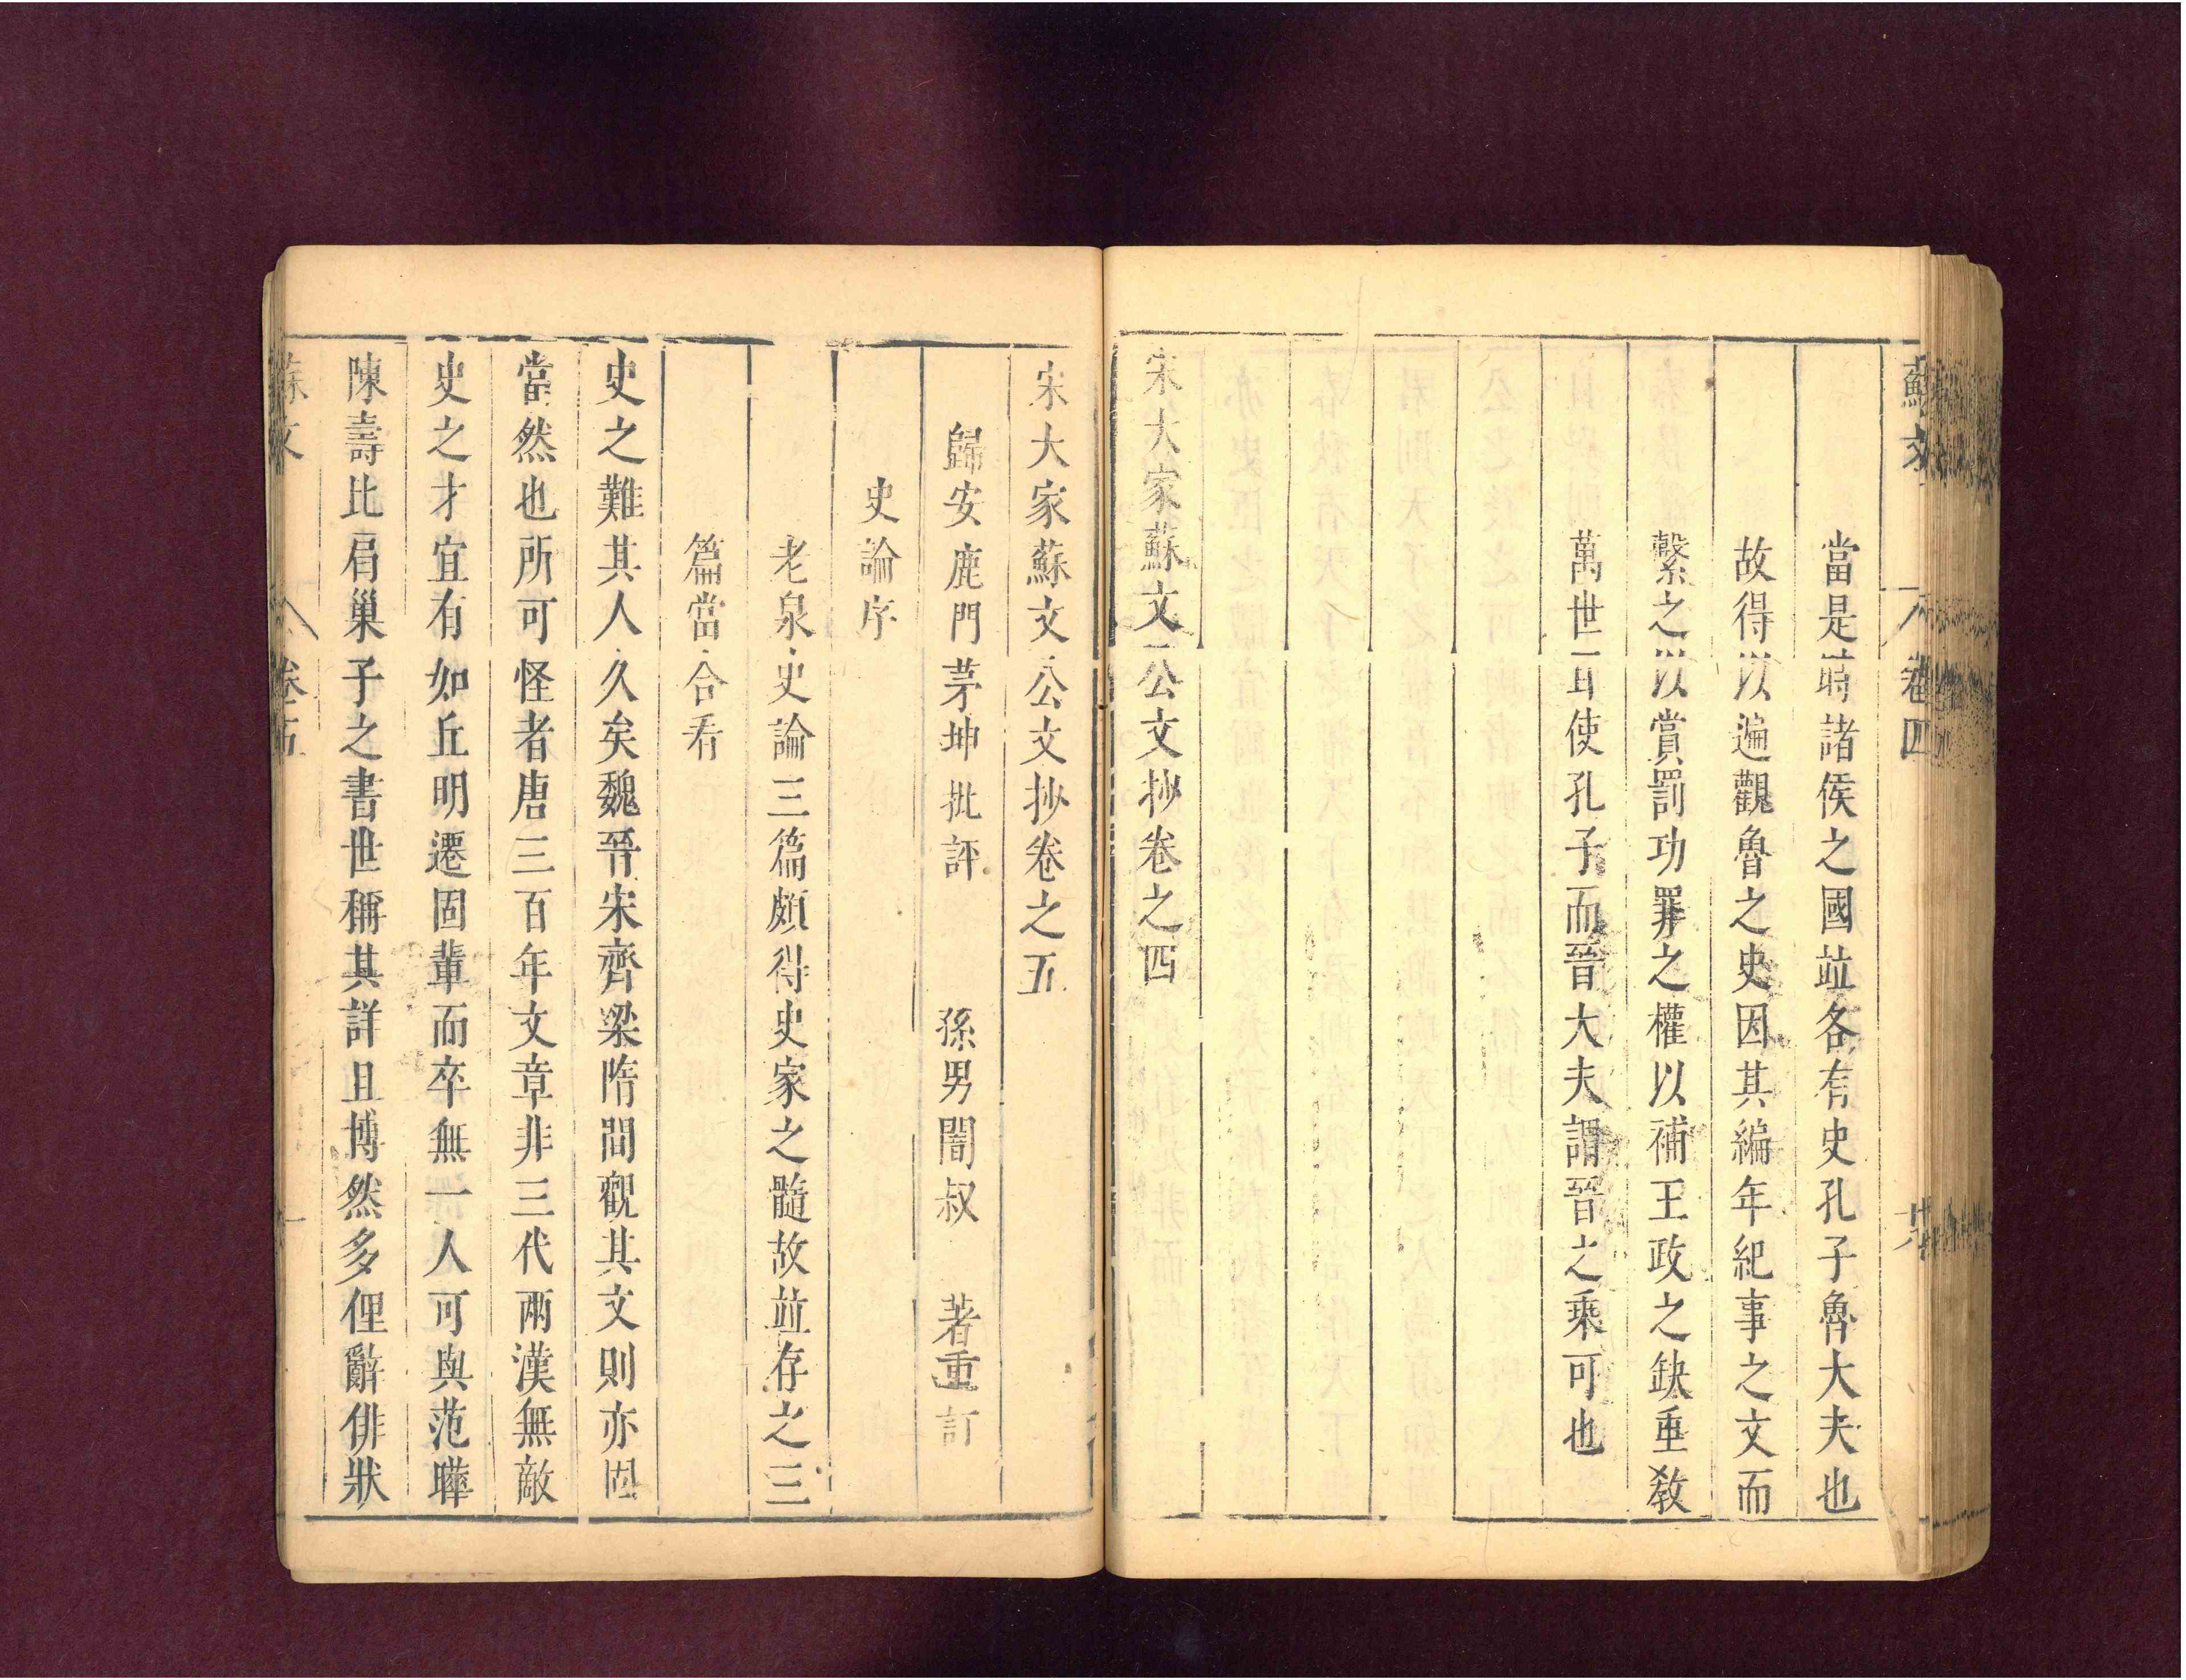 蘇文 卷四
當是時諸侯之國竝各有史孔子魯大夫也
故得以遍觀魯之史因其編年紀事之文而
繫之以賞罰功罪之權以補王政之缺垂教
萬世耳使孔子而晉大夫謂晉之乘可也
宋大家蘇文公文抄卷之四
宋大家蘇文公文抄卷之五
歸安鹿門茅坤批評 孫男闇叔 著重訂
史論序
老泉史論三篇頗得史家之髓故竝存之三
篇當合看
史之難其人久矣魏晉宋齊梁隋間觀其文則亦固
當然也所可怪者唐三百年文章非三代兩漢無敵
史之才宜有如丘明遷固輩而卒無一人可與范曄
陳壽比肩巢子之書世稱其詳且博然多俚辭俳狀
蘇文 卷五 一